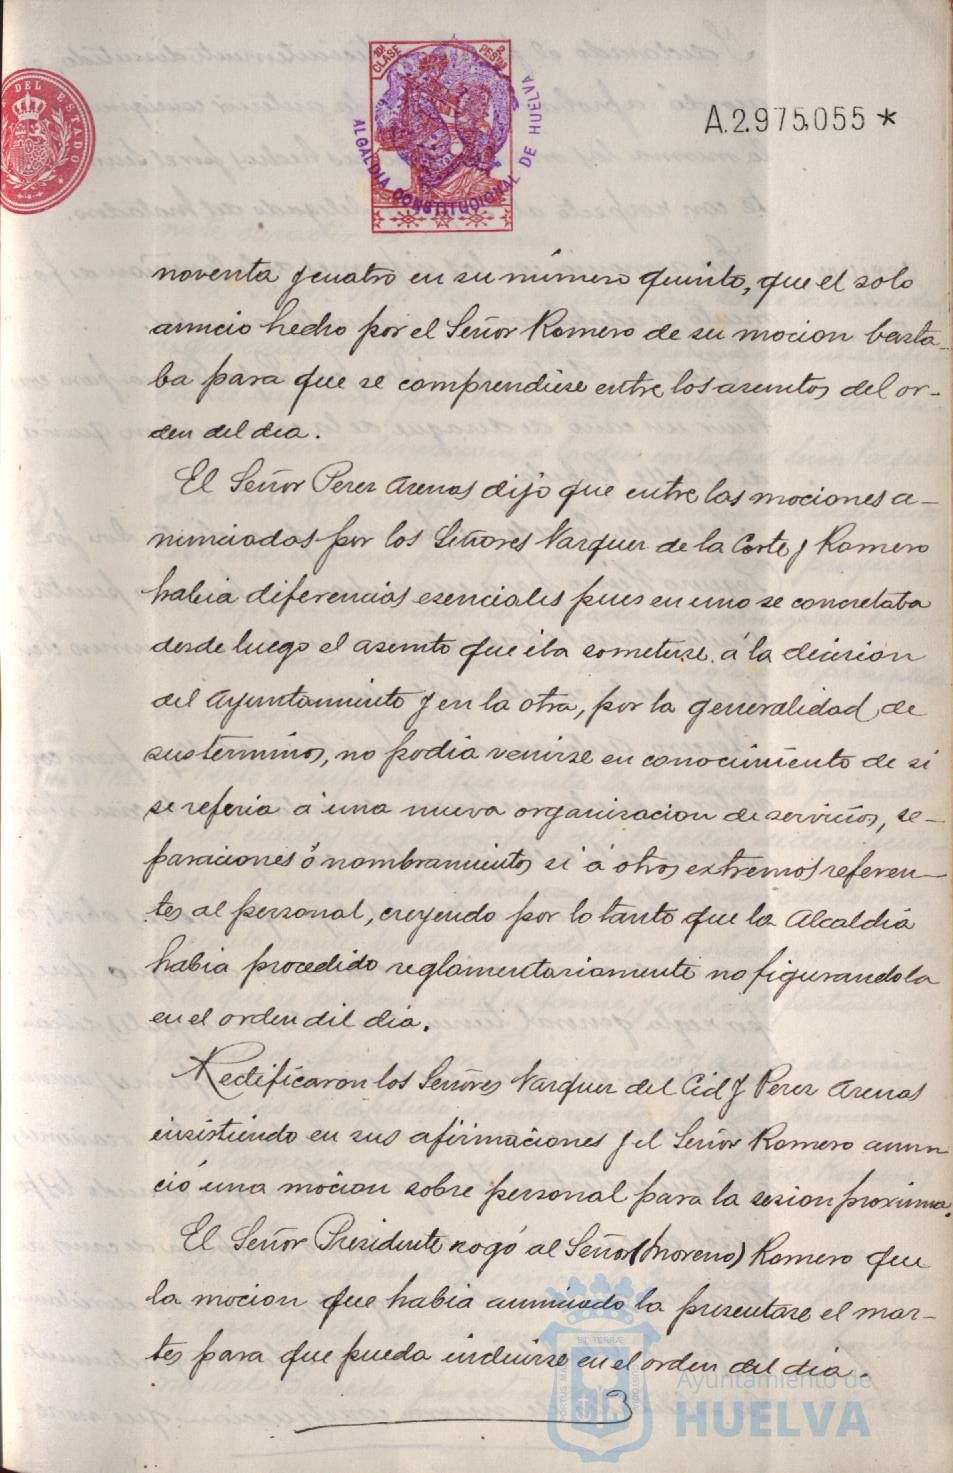 DEL ESTADO
10ª CLASE
2 PESETAS
ALCALDIA CONSTITUCIONAL DE HUELVA
A.2.975,055 *
noventa y cuatro en su número quinto, que el solo
anuncio hecho por el Señor Romero de su mocion basta-
ba para que se comprendiese entre los asuntos del or-
den del dia.
El Señor Perez Arenas dijo que entre las mociones a-
nunciadas por los Señores Vazquez de la Corte y Romero
habia diferencias esenciales pues en uno se concretaba
desde luego el asunto que iba someterse á la decision
del Ayuntamiento y en la otra, por la generalidad de
sus términos, no podia venirse en conocimiento de si
se referia á una nueva organizacion de servicios, se-
paraciones ó nombramientos si á otros extremos referen-
tes al personal, creyendo por lo tanto que la Alcaldia
habia procedido reglamentariamente no figurandola
en el orden del dia.
Rectificaron los Señores Vazquez del Cid y Perez Arenas
insistiendo en sus afirmaciones y el Señor Romero anun
ció una mocion sobre personal para la sesion proxima.
El Señor Presidente rogó al Señor (Moreno) Romero que
la mocion que habia anunciado la presentase el mar-
tes para que pueda incluirse en el orden del dia.
Ayuntamiento de
HUELVA